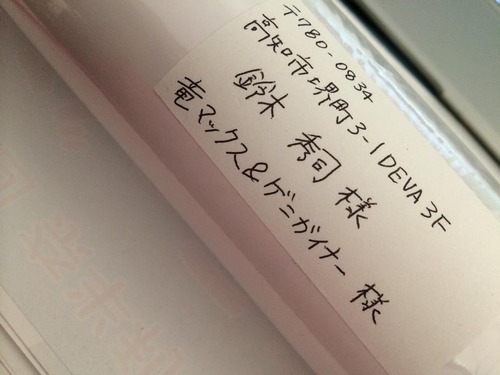 〒780-0834
高知市堺町3-1 DEVA 3F
鈴木 秀司 様
竜マックス&ゲニガイナー 様